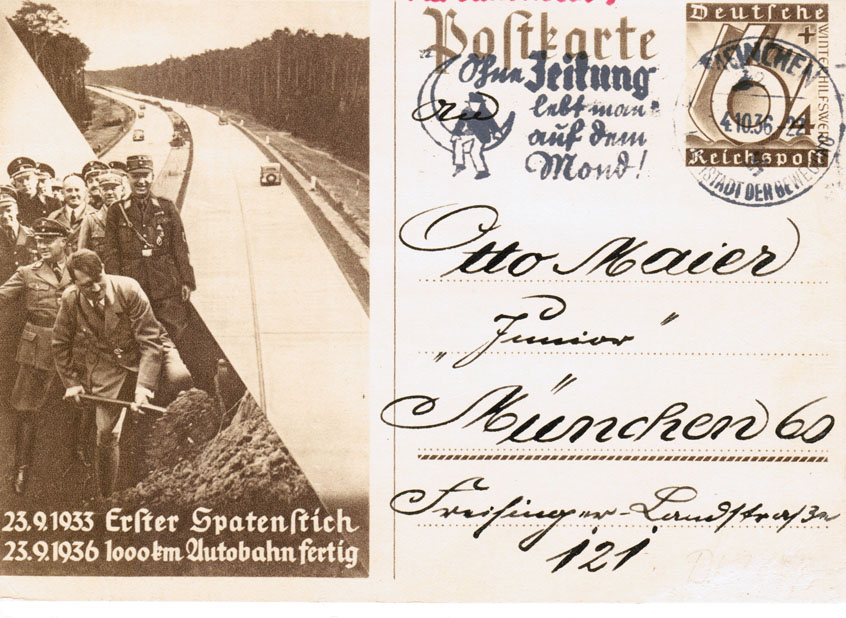 Deutsche
Postkarte
Ohne Zeitung
lebt man
auf dem
Mond!
an
+
WINTERHILFSWERK
6+4
MÜNCHEN
4.10.36.-22
HAUPTSTADT DER BEWEGUNG
Reichspost
Otto Maier
„Junior"
München 60
Freisinger-Landstraße
121
23.9.1933 Erster Spatenstich
23.9.1936 1000km Autobahn fertig